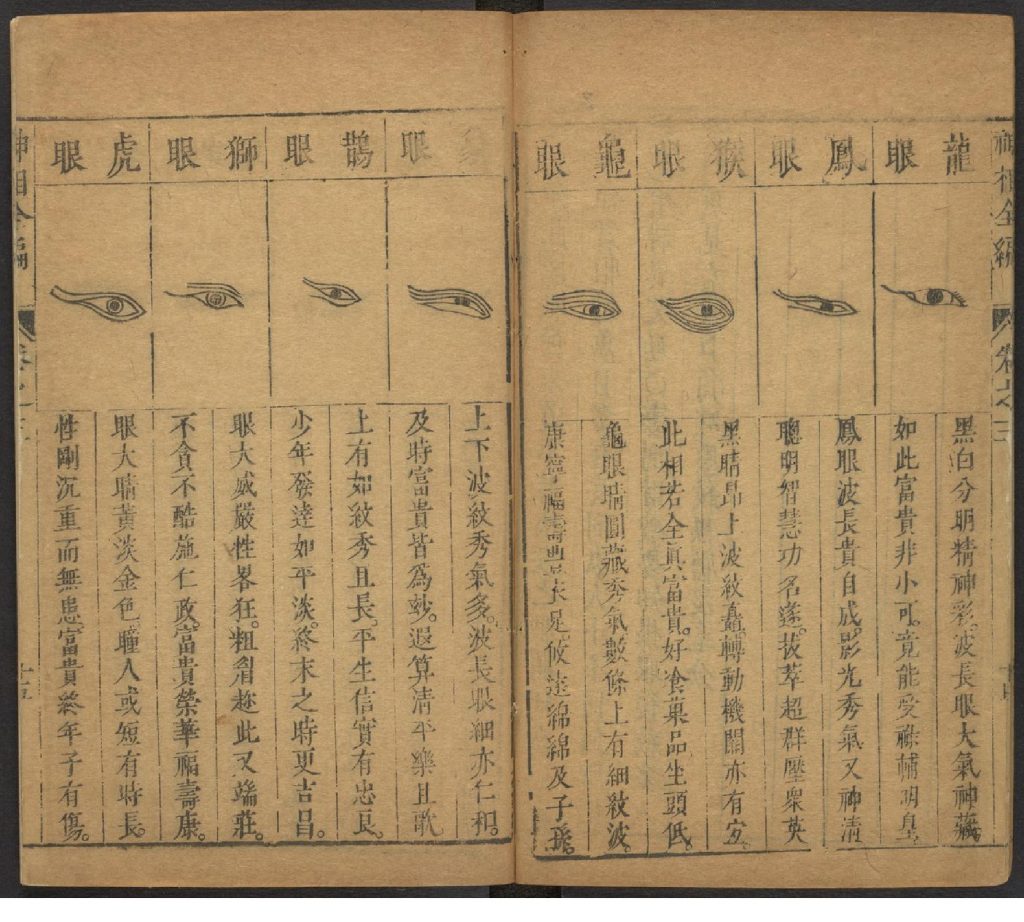 神相全編 卷之三 十四
龍眼
黑白分明精神彩。波長眼大氣神藏。
如此富貴非小可。竟能受祿輔明皇。
鳳眼
鳳眼波長貴自成。影光秀氣又神清
聰明智慧功名遂。拔萃超群壓衆英
猴眼
黑睛昂上波紋矗。轉動機關亦有宜。
此相若全真富貴。好食菓品坐頭低。
龜眼
龜眼睛圓藏秀氣。數條上有細紋波。
康寧福壽豊衣足。悠遠綿綿及子孫。
眼
上下波紋秀氣多。波長眼細亦仁和。
及時富貴皆爲玅。遐算清平樂且歌
鵲眼
上有如紋秀且長。平生信實有忠良。
少年發達如平淡。終末之時更吉昌。
獅眼
眼大威嚴性畧狂。粗眉趂此又端莊。
不貪不酷施仁政。富貴榮華福壽康。
虎眼
眼大睛黃淡金色。瞳人或短有時長。
性剛沉重而無患。富貴終年子有傷。
神相全編 卷之三 十五